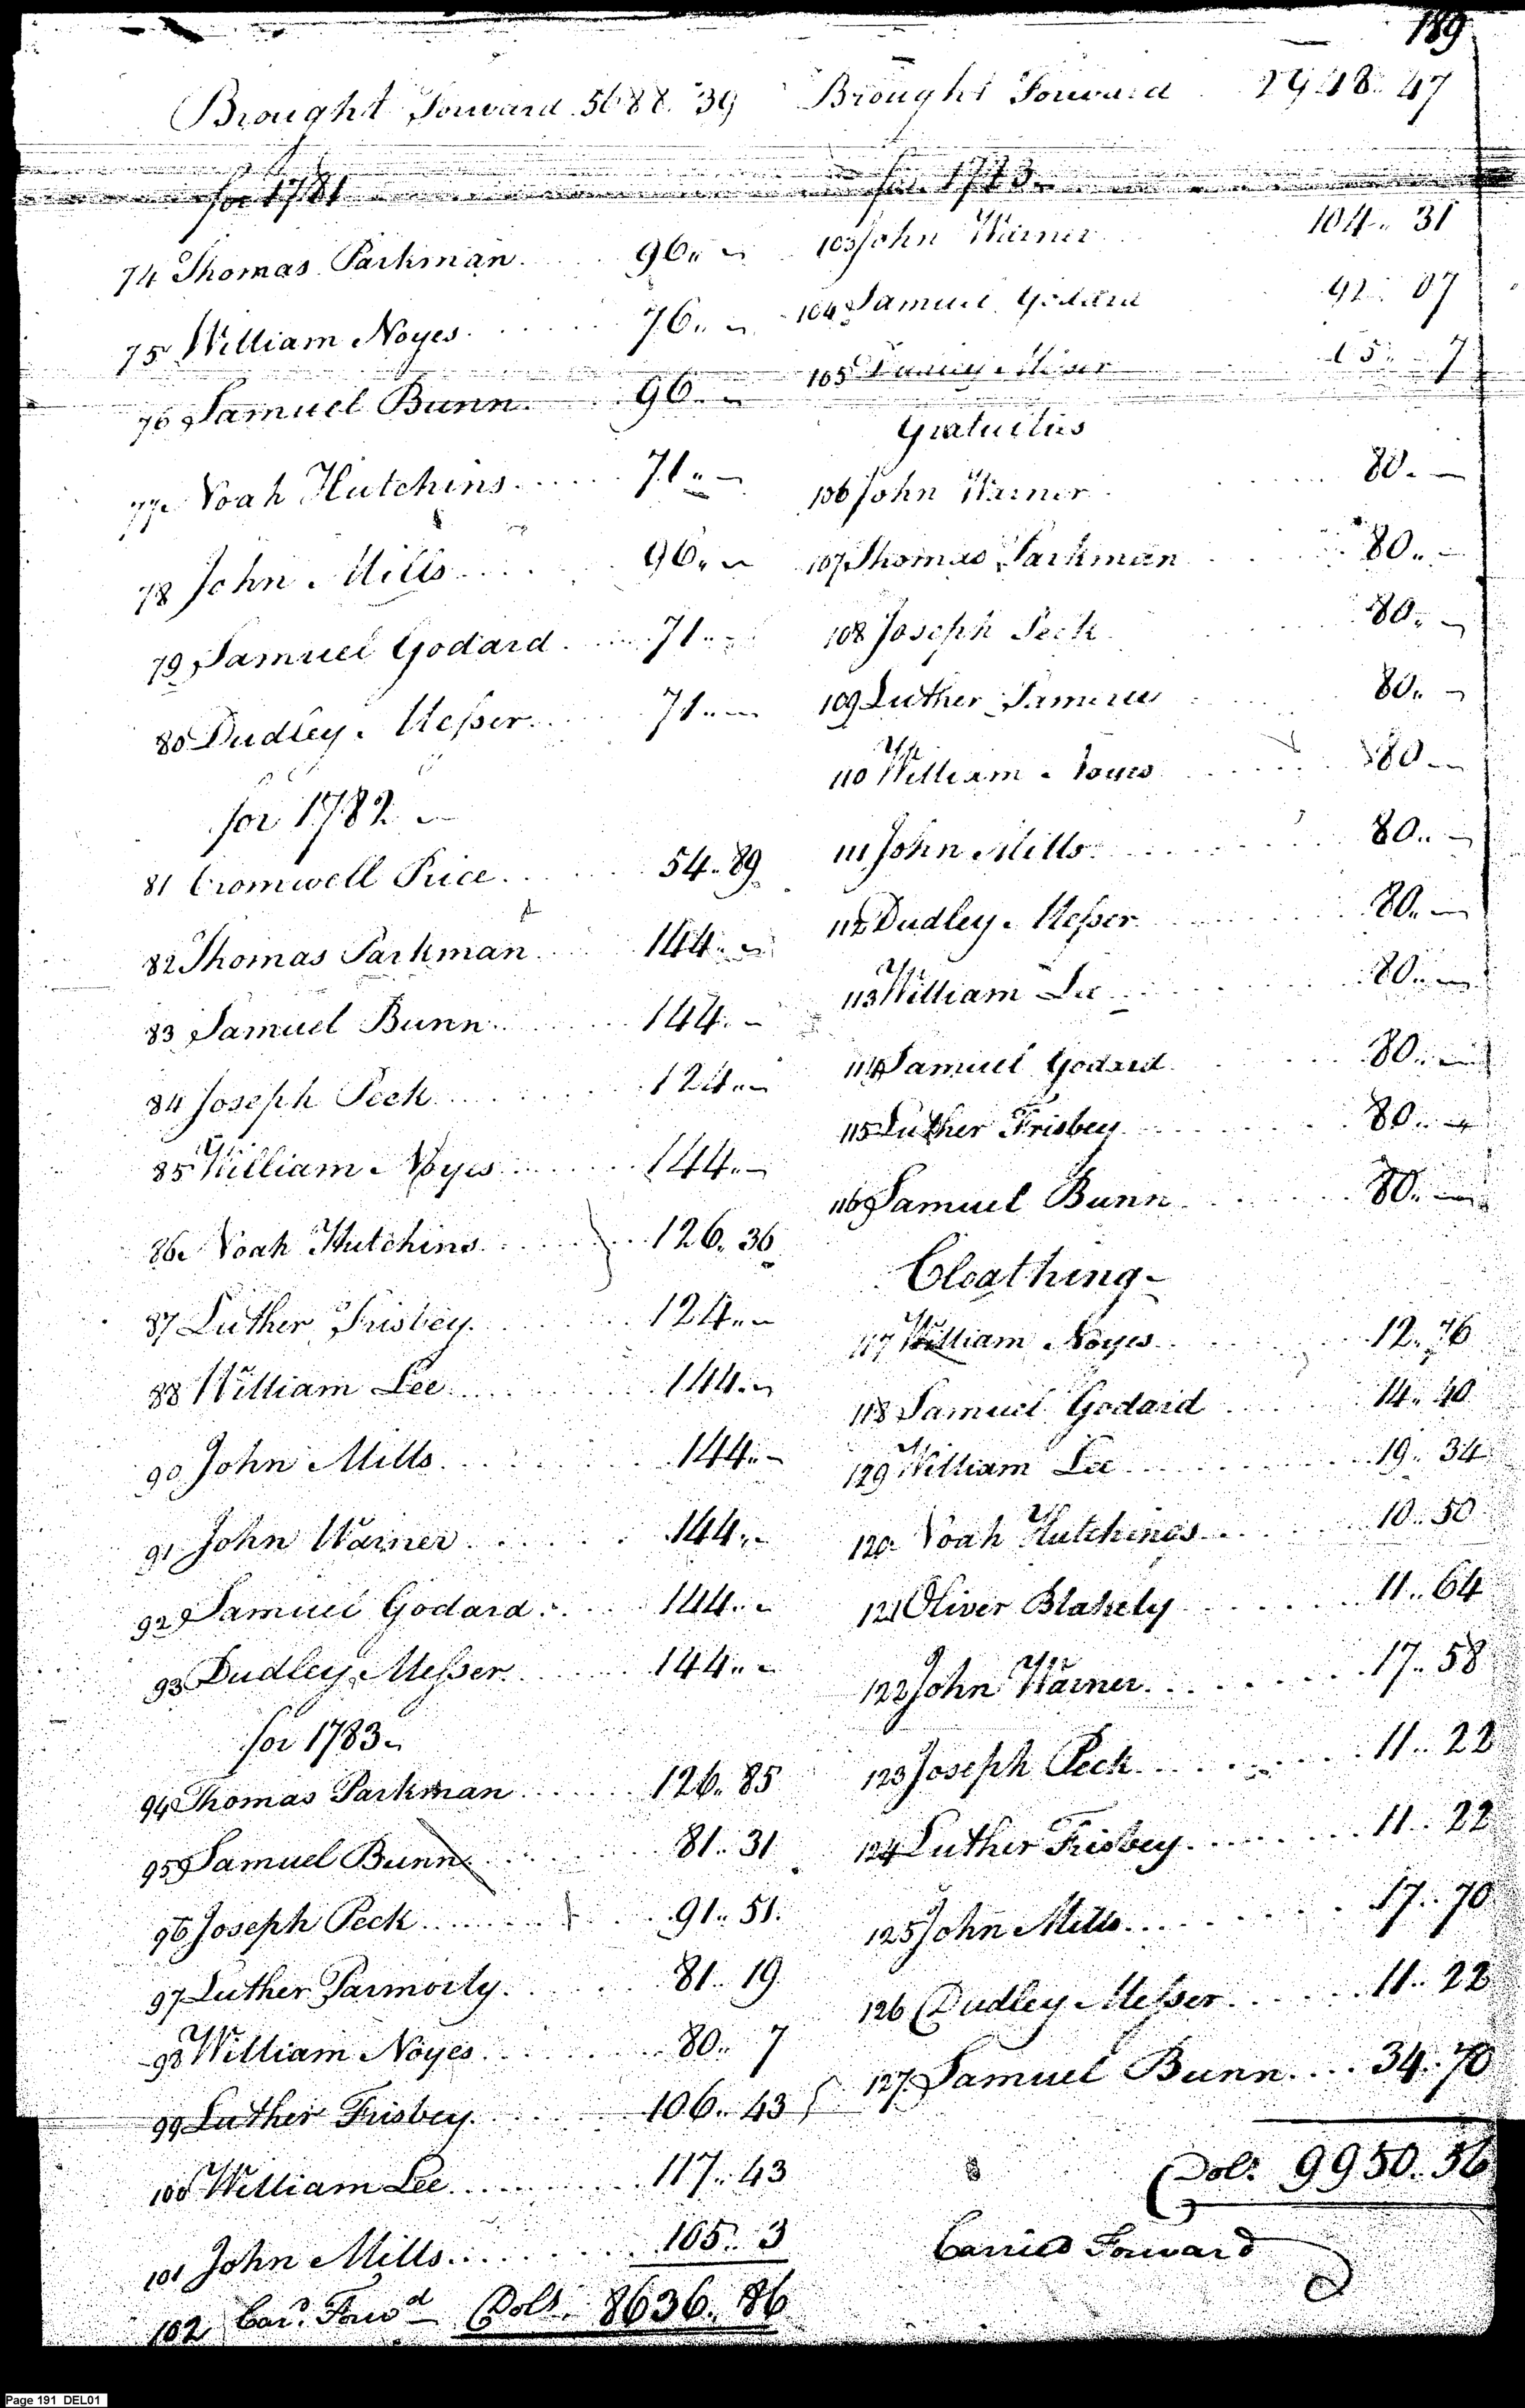 189
Brought Forward 5688.. 39
for 1781
74 Thomas Parkman 96..
75 William Noyes 76..
76 Samuel Bunn 96..
77 Noah Hutchins 71..
78 John Mills 96..
79 Samuel Godard 71..
80 Dudley Messer 71..
for 1782
81 Cromwell Price 54.. 89
82 Thomas Parkman 144..
83 Samuel Bunn 144..
84 Joseph Peck 124..
85 William Noyes 144..
86 Noah Hutchins 126.. 36
87 Luther Frisbey 124..
88 William Lee 144..
90 John Mills 144..
91 John Warner 144..
92 Samuel Godard 144..
93 Dudley Messer 144..
for 1783
94 Thomas Parkman 126.. 85
95 Samuel Bunn 81.. 31
96 Joseph Peck 91.. 51
97 Luther Parmorly 81.. 19
98 William Noyes 80.. 7
99 Luther Frisbey 106.. 43
100 William Lee 117.. 43
101 John Mills 105.. 3
102 Card. Forwd Dols. 8636.. 86
Brought Forward 47
for
103 John Warner 104.. 31
104 Samuel Godard 07
105 7
Gratuities
106 John Warner 80..
107 Thomas Parkman 80..
108 Joseph Peck 80..
109 Luther 80..
110 William Noyes 80..
111 John Mills 80..
112 Dudley Messer 80..
113 William Lee 80..
114 Samuel Godard 80..
115 Luther Frisbey 80..
116 Samuel Bunn 80..
Cloathing
117 William Noyes 12.. 76
118 Samuel Godard 14.. 40
129 William Lee 19.. 34
120 Noah Hutchings 10.. 50
121 Oliver Blakely 11.. 64
122 John Warner 17.. 58
123 Joseph Peck 11.. 22
124 Luther Frisbey 11.. 22
125 John Mills 17.. 70
126 Dudley Messer 11.. 22
127 Samuel Bunn 34.. 70
Dols. 9950.. 56
Carried Forward
Page 191 DEL01